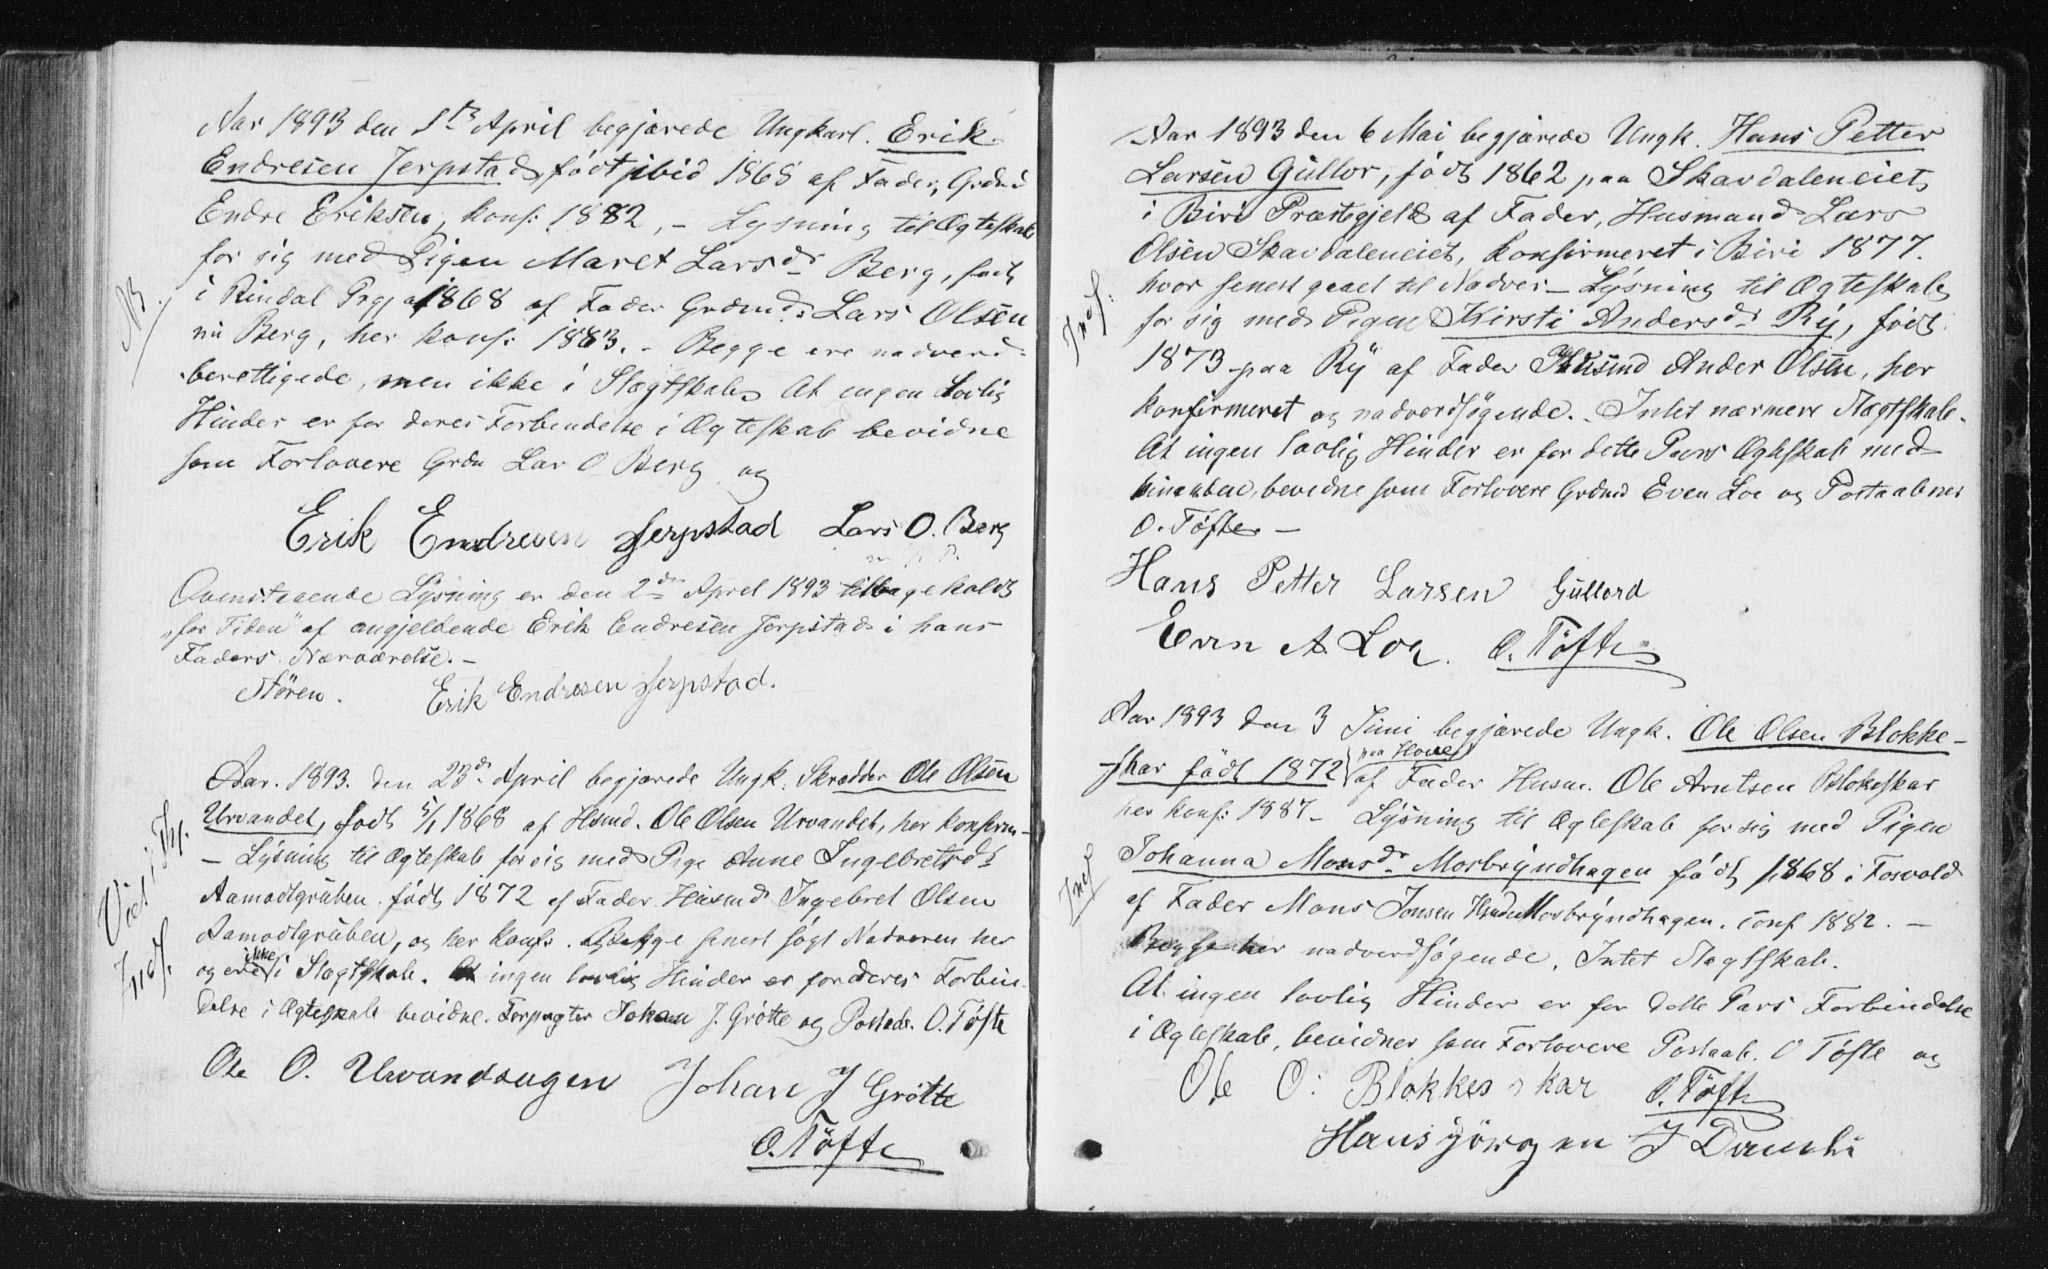 Aar 1893 den 1ste April begjærede Ungkarl. Erik
Endresen Jerpstad, født ibid 1868 af Fader, Grdmd
Endre Eriksen, konf: 1882, - Lysning til Ægteskab
for sig med Pigen Maret Larsdr Berg, født
i Rindal Prgj 1868 af Fader Grdmd: Lars Olsen
nu Berg, her konf: 1883. - Begge ere nadverd-
berettigede, men ikke i Slægtskab. At ingen lovlig
Hinder er for deres Forbindelse i Ægteskab bevidne
som Forlovere Grdm Lar O Berg og
NB.
Erik Endresen Jerpstad Lars O. Berg
m. p. P.
Ovenstaaende Lysning er den 2den April 1893 tilbagekaldt
"for Tiden" af angjeldende Erik Endresen Jerpstad i hans
Faders Nærværelse. -
Støren. Erik Endresen Jerpstad.
Aar. 1893. den 23de April begjærede Ungk. Skrædder Ole Olsen
Urvandet, født 5/1 1868 af Hsmd. Ole Olsen Urvandet, her konfirm-
- Lysning til Ægteskab for sig med Pige Anne Ingebretsdt
Aamodtgruben født 1872 af Fader Husmd Ingebret Olsen
Aamodtgruben, og her konf. Begge senest søgt Nadveren her
og ere ikke i Slægtskab. At ingen lovlig Hinder er for deres Forbin-
delse i Ægteskab bevidne. Forpagter Johan J. Grøtte og Postaab. O. Tøfte
Viet i Th.
Indf.
Ole O. Urvandsugen Johan J Grøtte
O. Tøfte
Aar 1893 den 6 Mai begjærede Ungk. Hans Petter
Larsen Gullor, født 1862 paa Skavdaleneiet
i Biri Præstegjeld af Fader, Husmand Lars
Olsen Skavdaleneiet, konfirmeret i Biri 1877.
hvor senest gaaet til Nadver - Lysning til Ægteskab
for sig med Pigen Kirsti Andersdr Ry, født
1873 paa Ry af Fader Husmd Ander Olsen, her
konfirmeret og nadverdsøgende. - Intet nærmere Slægtskab.
At ingen lovlig Hinder er for dette Pars Ægteskab med
hinanden, bevidne som Forlovere Grdmd Even Loe og Postaabner
O. Tøfte -
Indf:
Hans Petter Larsen Gullord
Even A. Loe. O. Tøfte
Aar 1893 den 3 Juni begjærede Ungk. Ole Olsen Blokke-
skar født 1872 paa Hove af Fader Husm. Ole Arntsen Blokeskar
her konf: 1887 - Lysning til Ægteskab for sig med Pigen
Johanna Monsdr Mosbryndhagen født 1868 i Fosvold
af Fader Mons Jonsen Mosbryndhagen. conf 1882. -
Begge her nadverdsøgende. Intet Slægtskab.
At ingen lovlig Hinder er for dette Pars Forbindelse
i Ægteskab, bevidner som Forlovere Postaab. O Tøfte og
Indf
Ole O: Blokkeskar O. Tøfte
Hansjörgen J